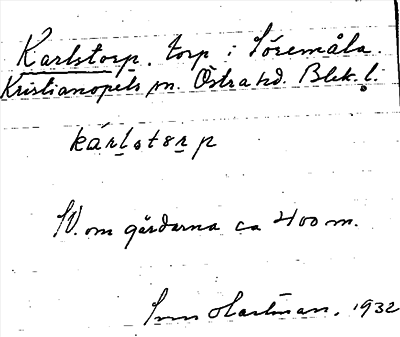 Karlstorp. torp i Söremåla.
Kristianopels sn. Östra hd. Blek. l.
ka᷄rlstɵrp
SV. om gårdarna ca 400 m.
Sven Hartman. 1932